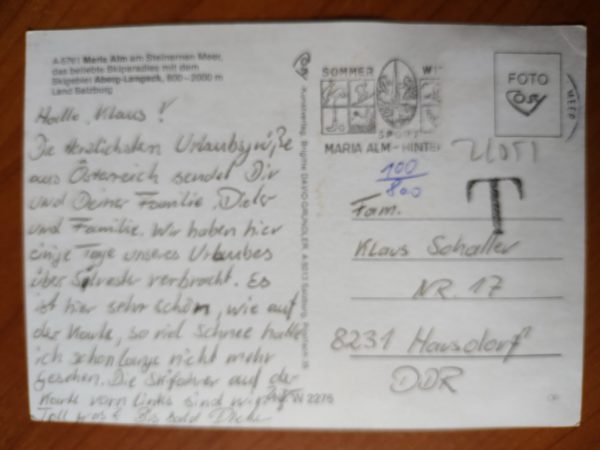 A-5761 Maria Alm am Steinernen Meer,
das beliebte Skiparadies mit dem
Skigebiet Aberg-Langeck, 800–2000 m
Land Salzburg
Hallo Klaus!
Die herzlichsten Urlaubsgrüße
aus Österreich sendet Dir
und Deiner Familie, Dieter
und Familie. Wir haben hier
einige Tage unseres Urlaubes
über Silvester verbracht. Es
ist hier sehr schön, wie auf
der Karte, so viel Schnee hatte
ich schon lange nicht mehr
gesehen. Die Skifahrer auf der
Karte vorn links sind wir
Toll was? Bis bald Dieter
Kunstverlag Brigitte
A 5013 Salzburg
W 2275
SOMMER
WI
SPORT
MARIA ALM - HINTER
FOTO
100
800
T
Fam.
Klaus Schaller
NR. 17
8231 Hausdorf
DDR